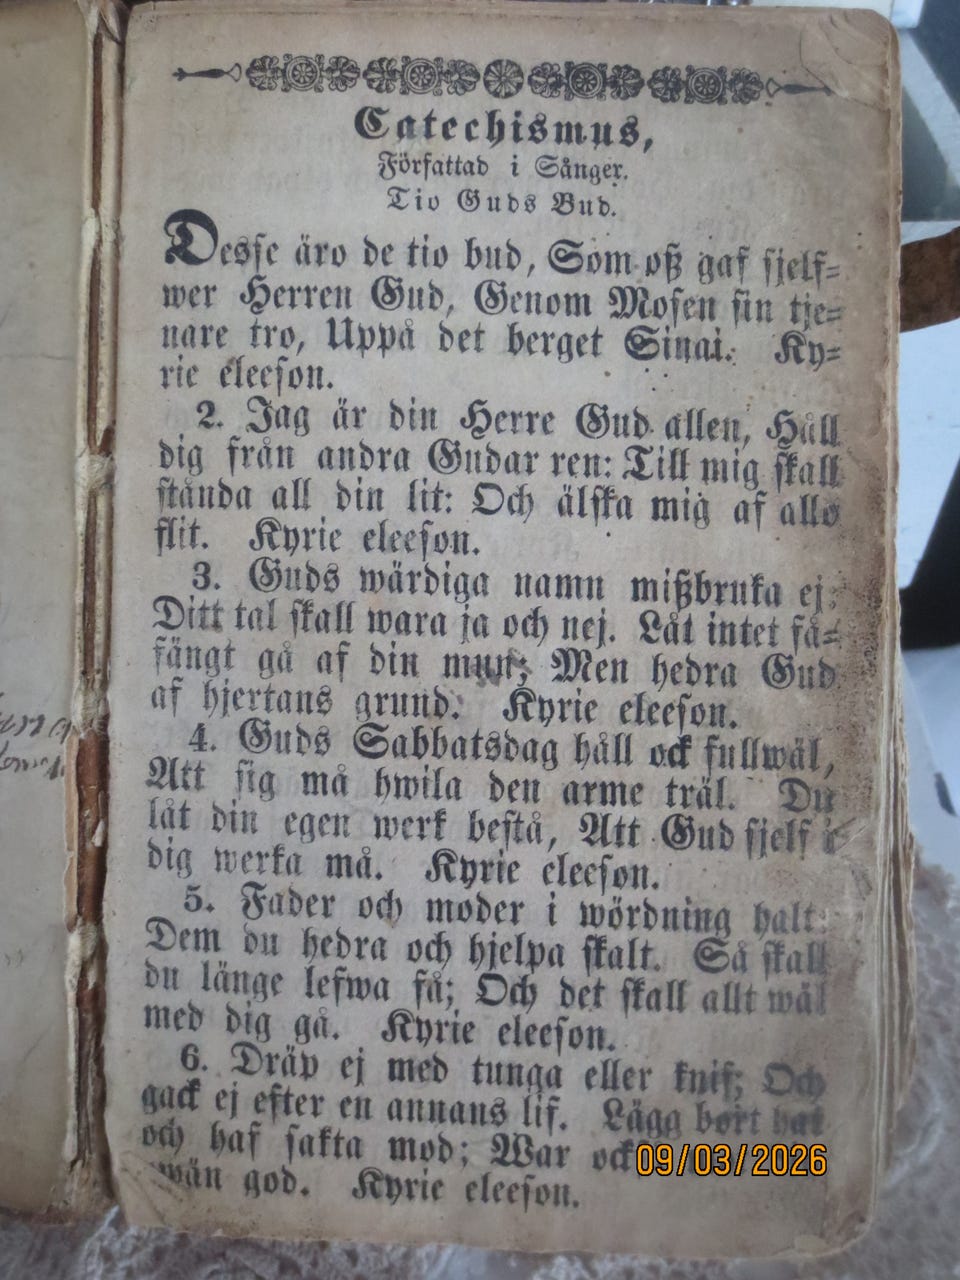 Catechismus,
Författad i Sånger.
Tio Guds Bud.
Desse äro de tio bud, Som oß gaf sjelf=
wer Herren Gud, Genom Mosen sin tje=
nare tro, Uppå det berget Sinai. Ky=
rie eleeson.
2. Jag är din Herre Gud allen, Håll
dig från andra Gudar ren: Till mig skall
stånda all din lit: Och älska mig af allo
flit. Kyrie eleeson.
3. Guds wärdiga namn mißbruka ej:
Ditt tal skall wara ja och nej. Låt intet få=
fängt gå af din mun; Men hedra Gud
af hjertans grund. Kyrie eleeson.
4. Guds Sabbatsdag håll ock fullwäl,
Att sig må hwila den arme träl. Du
låt din egen werk bestå, Att Gud sjelf i
dig werka må. Kyrie eleeson.
5. Fader och moder i wördning halt:
Dem du hedra och hjelpa skalt. Så skall
du länge lefwa få; Och det skall allt wäl
med dig gå. Kyrie eleeson.
6. Dräp ej med tunga eller knif; Och
gack ej efter en annans lif. Lägg bort hat
och haf sakta mod; War ock
wän god. Kyrie eleeson.
09/03/2026